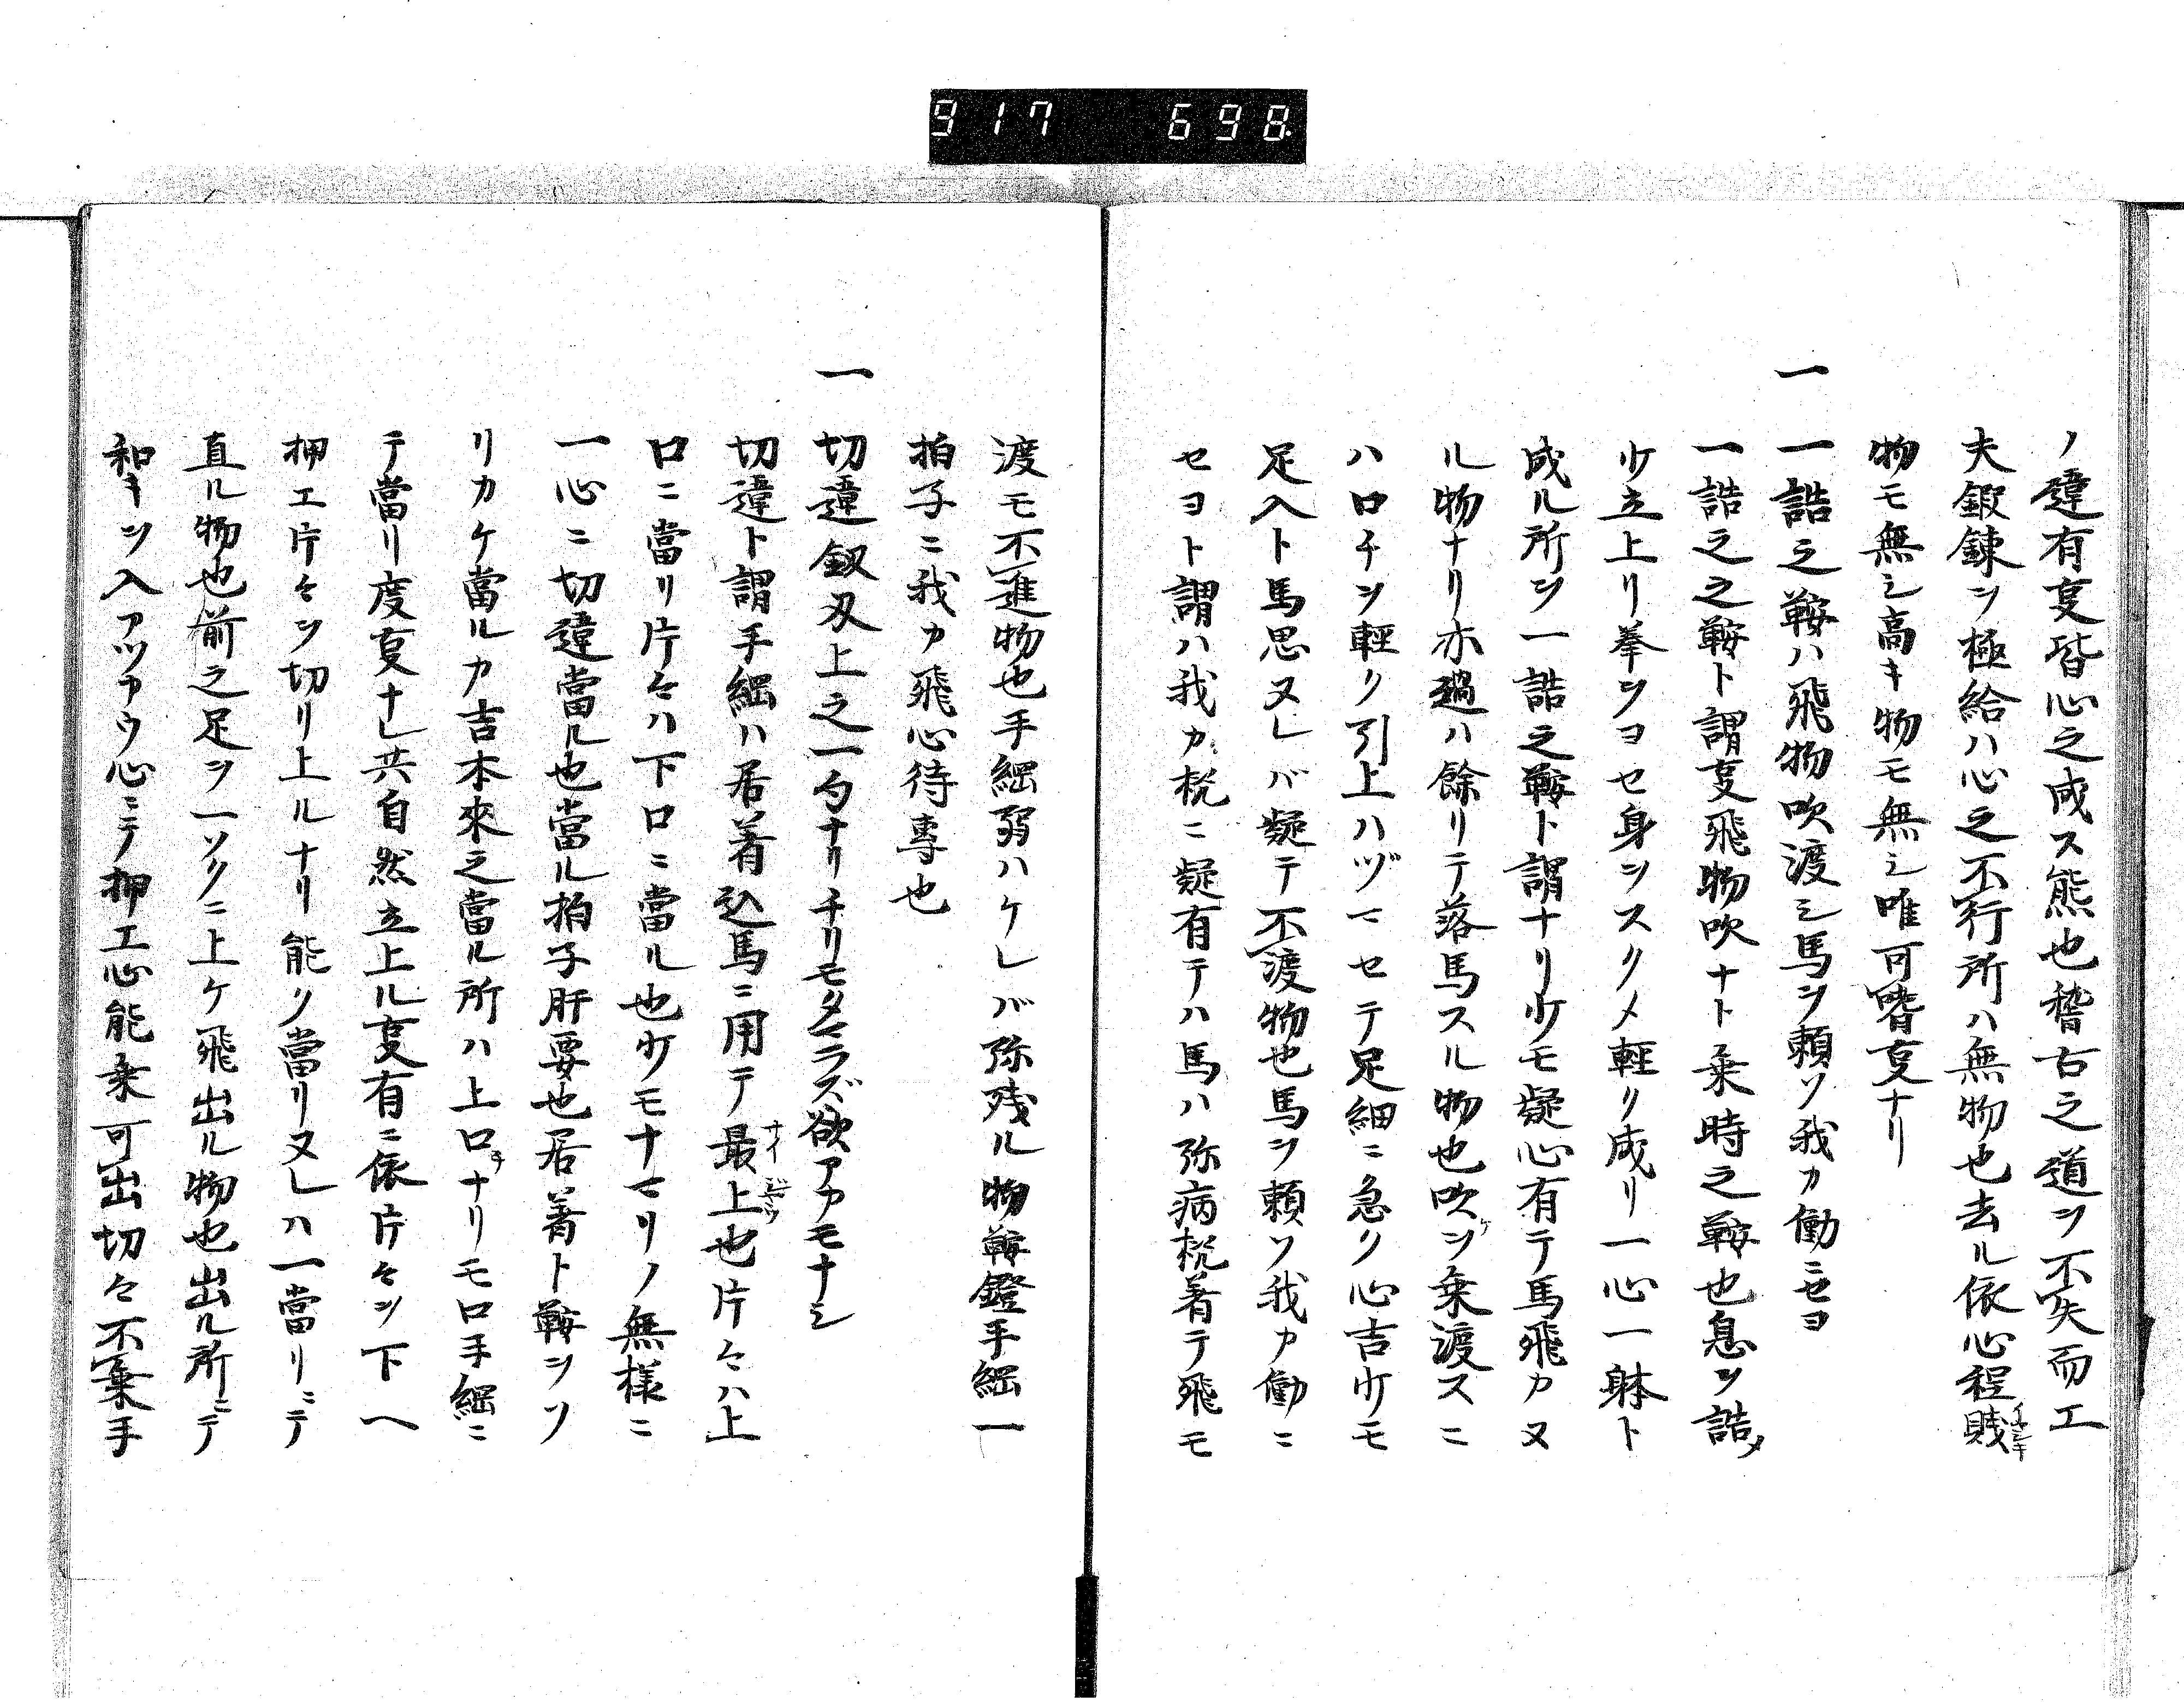 917 698
ノ違有叓皆心之成ス熊也稽古之道ヲ不失而工
夫鍛錬ヲ極給ハ心之不行所ハ無物也去ル依心程賎
物モ無シ高キ物モ無シ唯可嗜叓ナリ
一 一詰之鞍ハ飛物吹渡シ馬ヲ頼ソ我カ働ニセヨ
一詰之之鞍ト謂叓飛物吹ナト乗時之鞍也息ヲ詰メ
少立上リ拳ヲヨセ身ヲスクメ軽ク成リ一心一躰ト
成ル所ヲ一詰之鞍ト謂ナリ少モ疑心有テ馬飛カヌ
ル物ナリ亦過ハ餘リテ落馬スル物也吹ヲ乗渡スニ
ハ口チヲ軽ク引上ハヅマセテ足細ニ急ク心吉少モ
足入ト馬思ヌレバ疑テ不渡物也馬ヲ頼ソ我カ働ニ
セヨト謂ハ我カ 疑有テハ馬ハ弥病 着テ飛モ
渡モ不進物也手綱弱ハケレバ弥残ル物鞍鐙手綱一
拍子ニ我カ飛心待專也
一 切違釼刄上之一勺ナリチリモタマラズ欲アカモナシ
切違ト謂手綱ハ居着込馬ニ用テ最上也片々ハ上
口ニ當リ片々ハ下口ニ當ル也少モナマリノ無様ニ
一心ニ切違當ル也當ル拍子肝要也居着ト鞍ヲソ
リカケ當ルカ吉本來之當ル所ハ上口ナリモロ手綱ニ
テ當リ度叓ナレ共自然立上ル叓有ニ依片々ヲ下ヘ
押エ片々ヲ切リ上ルナリ能ク當リヌレハ一當リニテ
直ル物也前之足ヲ一ソクニ上ケ飛出ル物也出ル所ニテ
和キヲ入アツアウ心ニテ押工心能乗可出切々不棄手